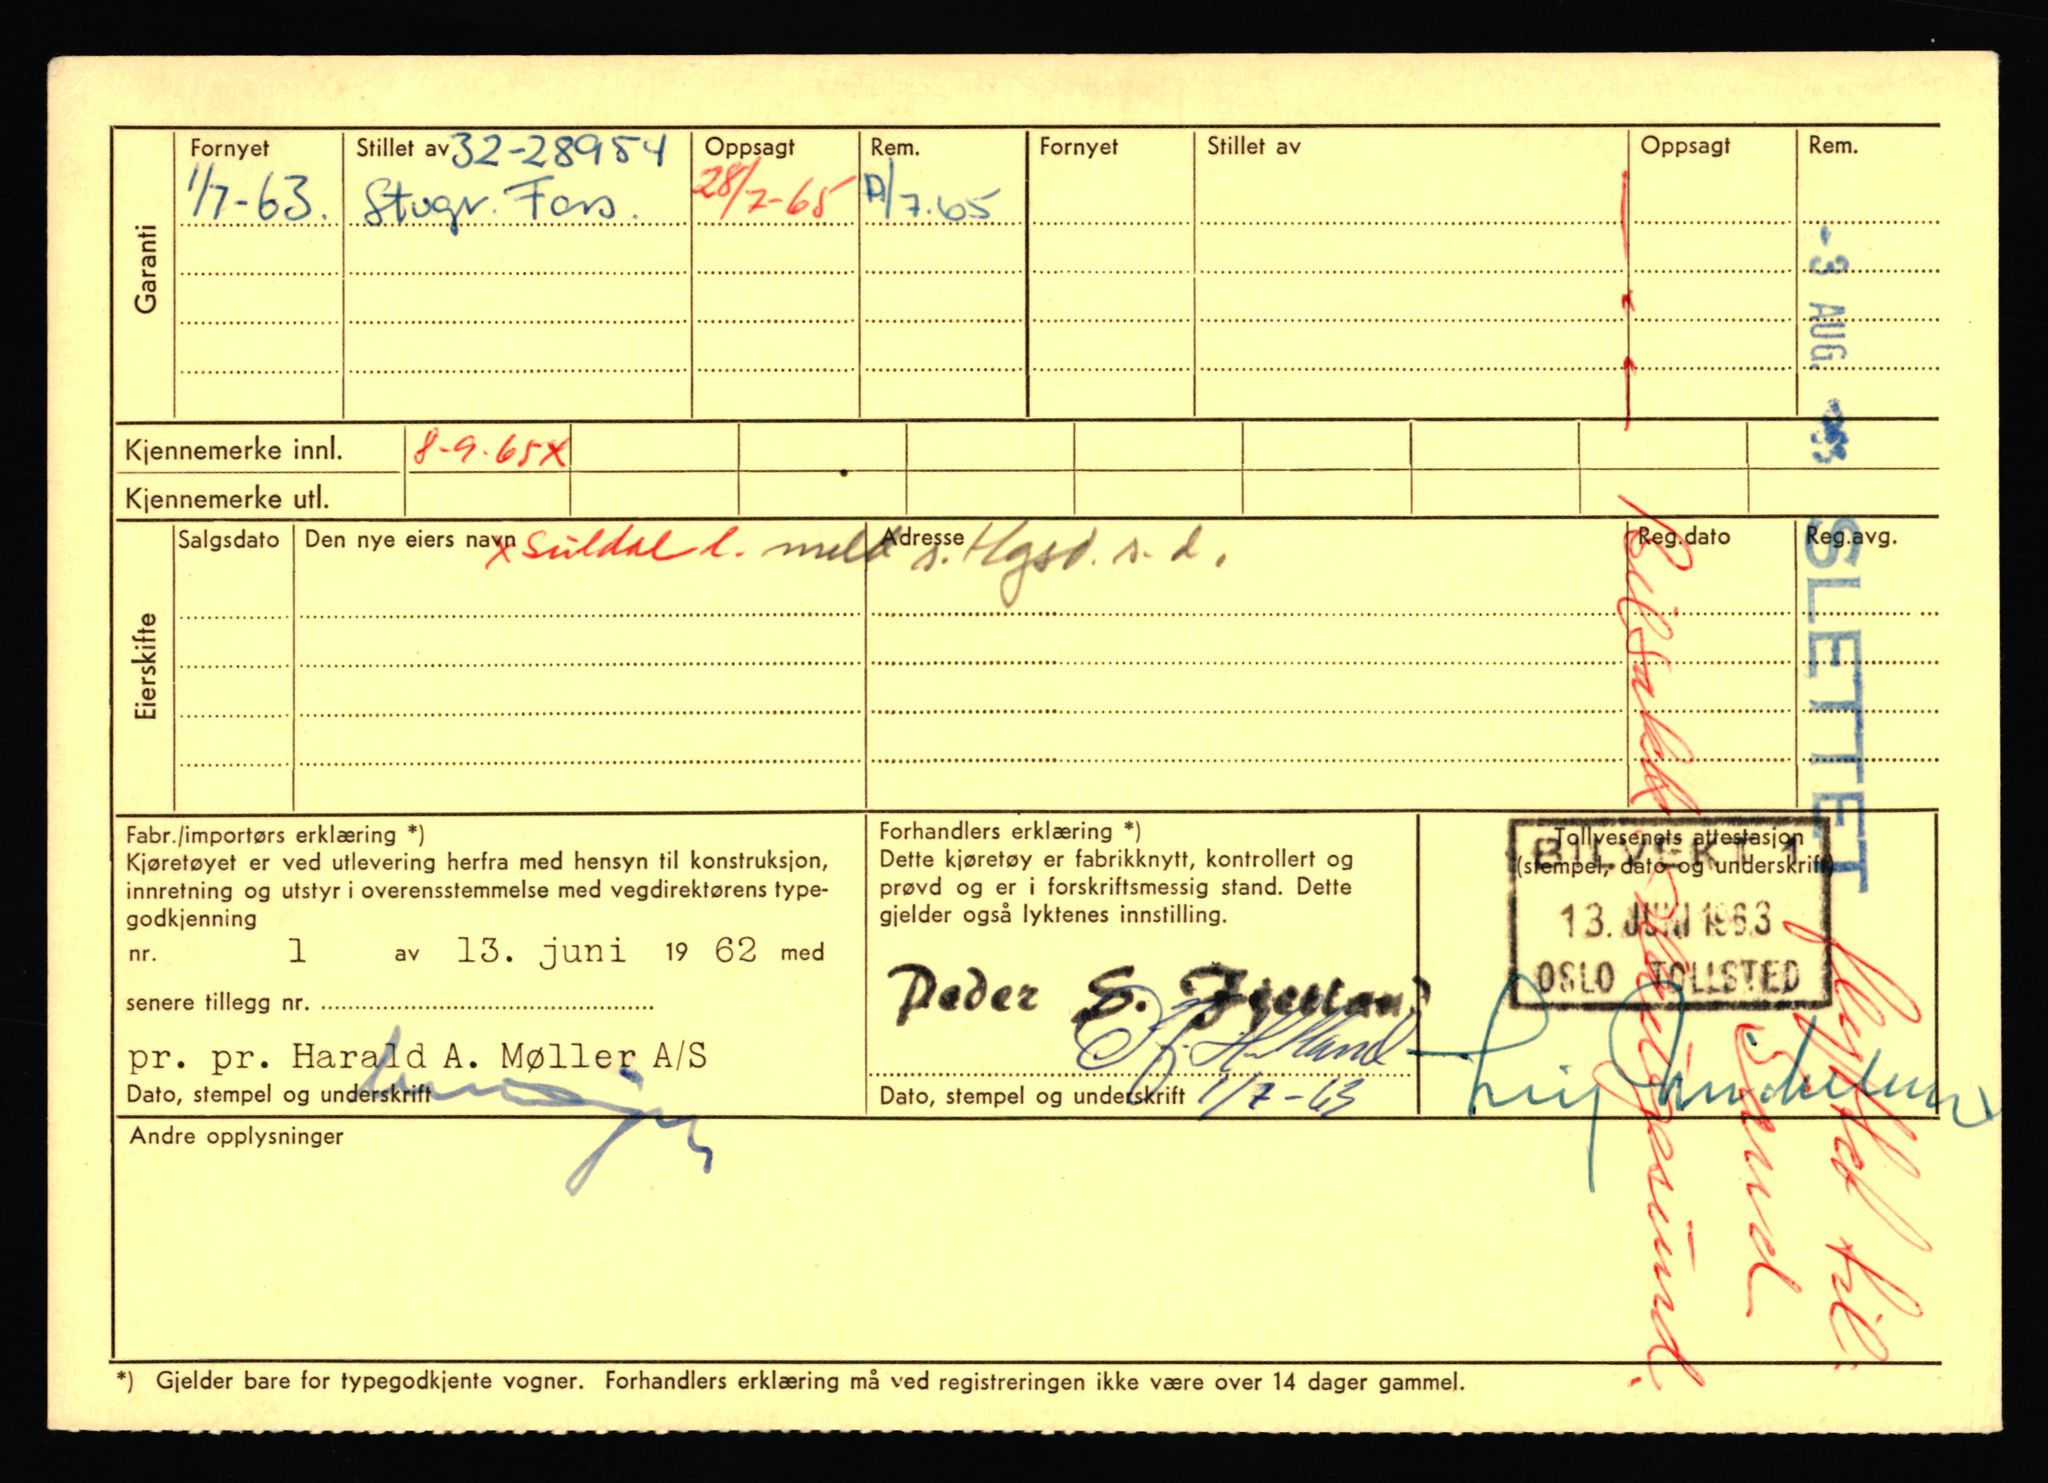 Garanti
Fornyet Stillet av 32-28954 Oppsagt Rem. Fornyet Stillet av Oppsagt Rem.
1/7-63. Stvgr. Fors. 28/7-65 /7.65
-3 AUG.
Kjennemerke innl. 8-9-65x
Kjennemerke utl.
Eierskifte
Salgsdato Den nye eiers navn Adresse Reg.dato Reg.avg.
x Suldal l. meld s. Hgsd. s. d.
SLETTET
flyttet til:
Sand
Haugesund.
Fabr./importørs erklæring *)
Kjøretøyet er ved utlevering herfra med hensyn til konstruksjon,
innretning og utstyr i overensstemmelse med vegdirektørens type-
godkjenning
nr. 1 av 13. juni 19 62 med
senere tillegg nr.
pr. pr. Harald A. Møller A/S
Dato, stempel og underskrift
Forhandlers erklæring *)
Dette kjøretøy er fabrikknytt, kontrollert og
prøvd og er i forskriftsmessig stand. Dette
gjelder også lyktenes innstilling.
Peder S. Fjetland
Dato, stempel og underskrift 1/7-63
Tollvesenets attestasjon
(stempel, dato og underskrift)
13. JUNI 1963
OSLO TOLLSTED
Andre opplysninger
*) Gjelder bare for typegodkjente vogner. Forhandlers erklæring må ved registreringen ikke være over 14 dager gammel.